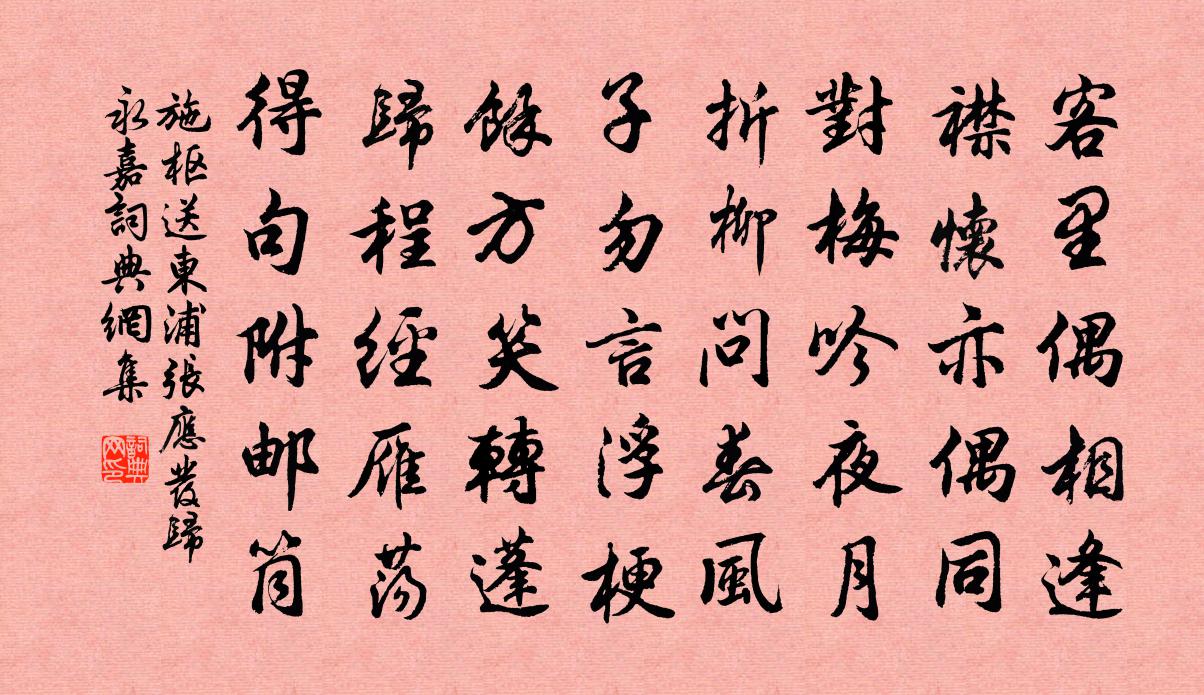 客里偶相逢
襟懷亦偶同
對梅吟夜月
折柳問春風
子勿言浮梗
餘方笑轉蓬
歸程經雁蕩
得句附邮筒
施枢送東浦張應發歸
永嘉詞典網集
詞典网印